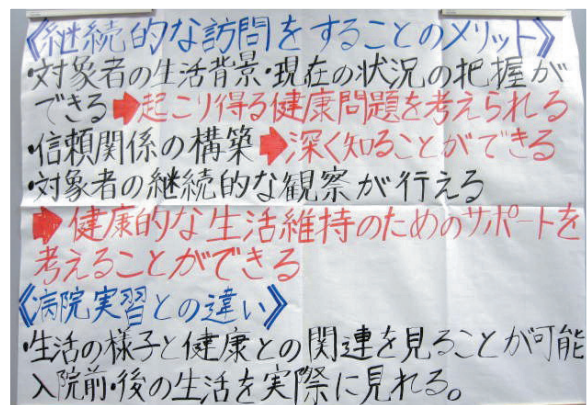 《継続的な訪問をすることのメリット》
・対象者の生活背景・現在の状況の把握が
できる➡起こり得る健康問題を考えられる
・信頼関係の構築➡深く知ることができる
・対象者の継続的な観察が行える
➡健康的な生活維持のためのサポートを
考えることができる
《病院実習との違い》
・生活の様子と健康との関連を見ることが可能
入院前・後の生活を実際に見れる。